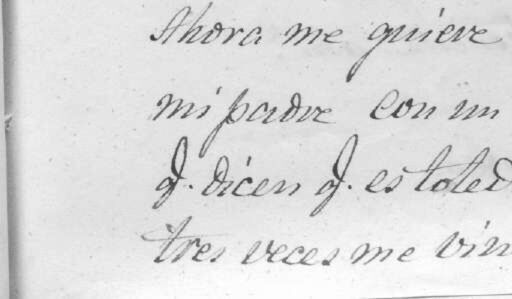 Ahora me quiere
mi padre con un
q. dicen q. es toled
tres veces me vin